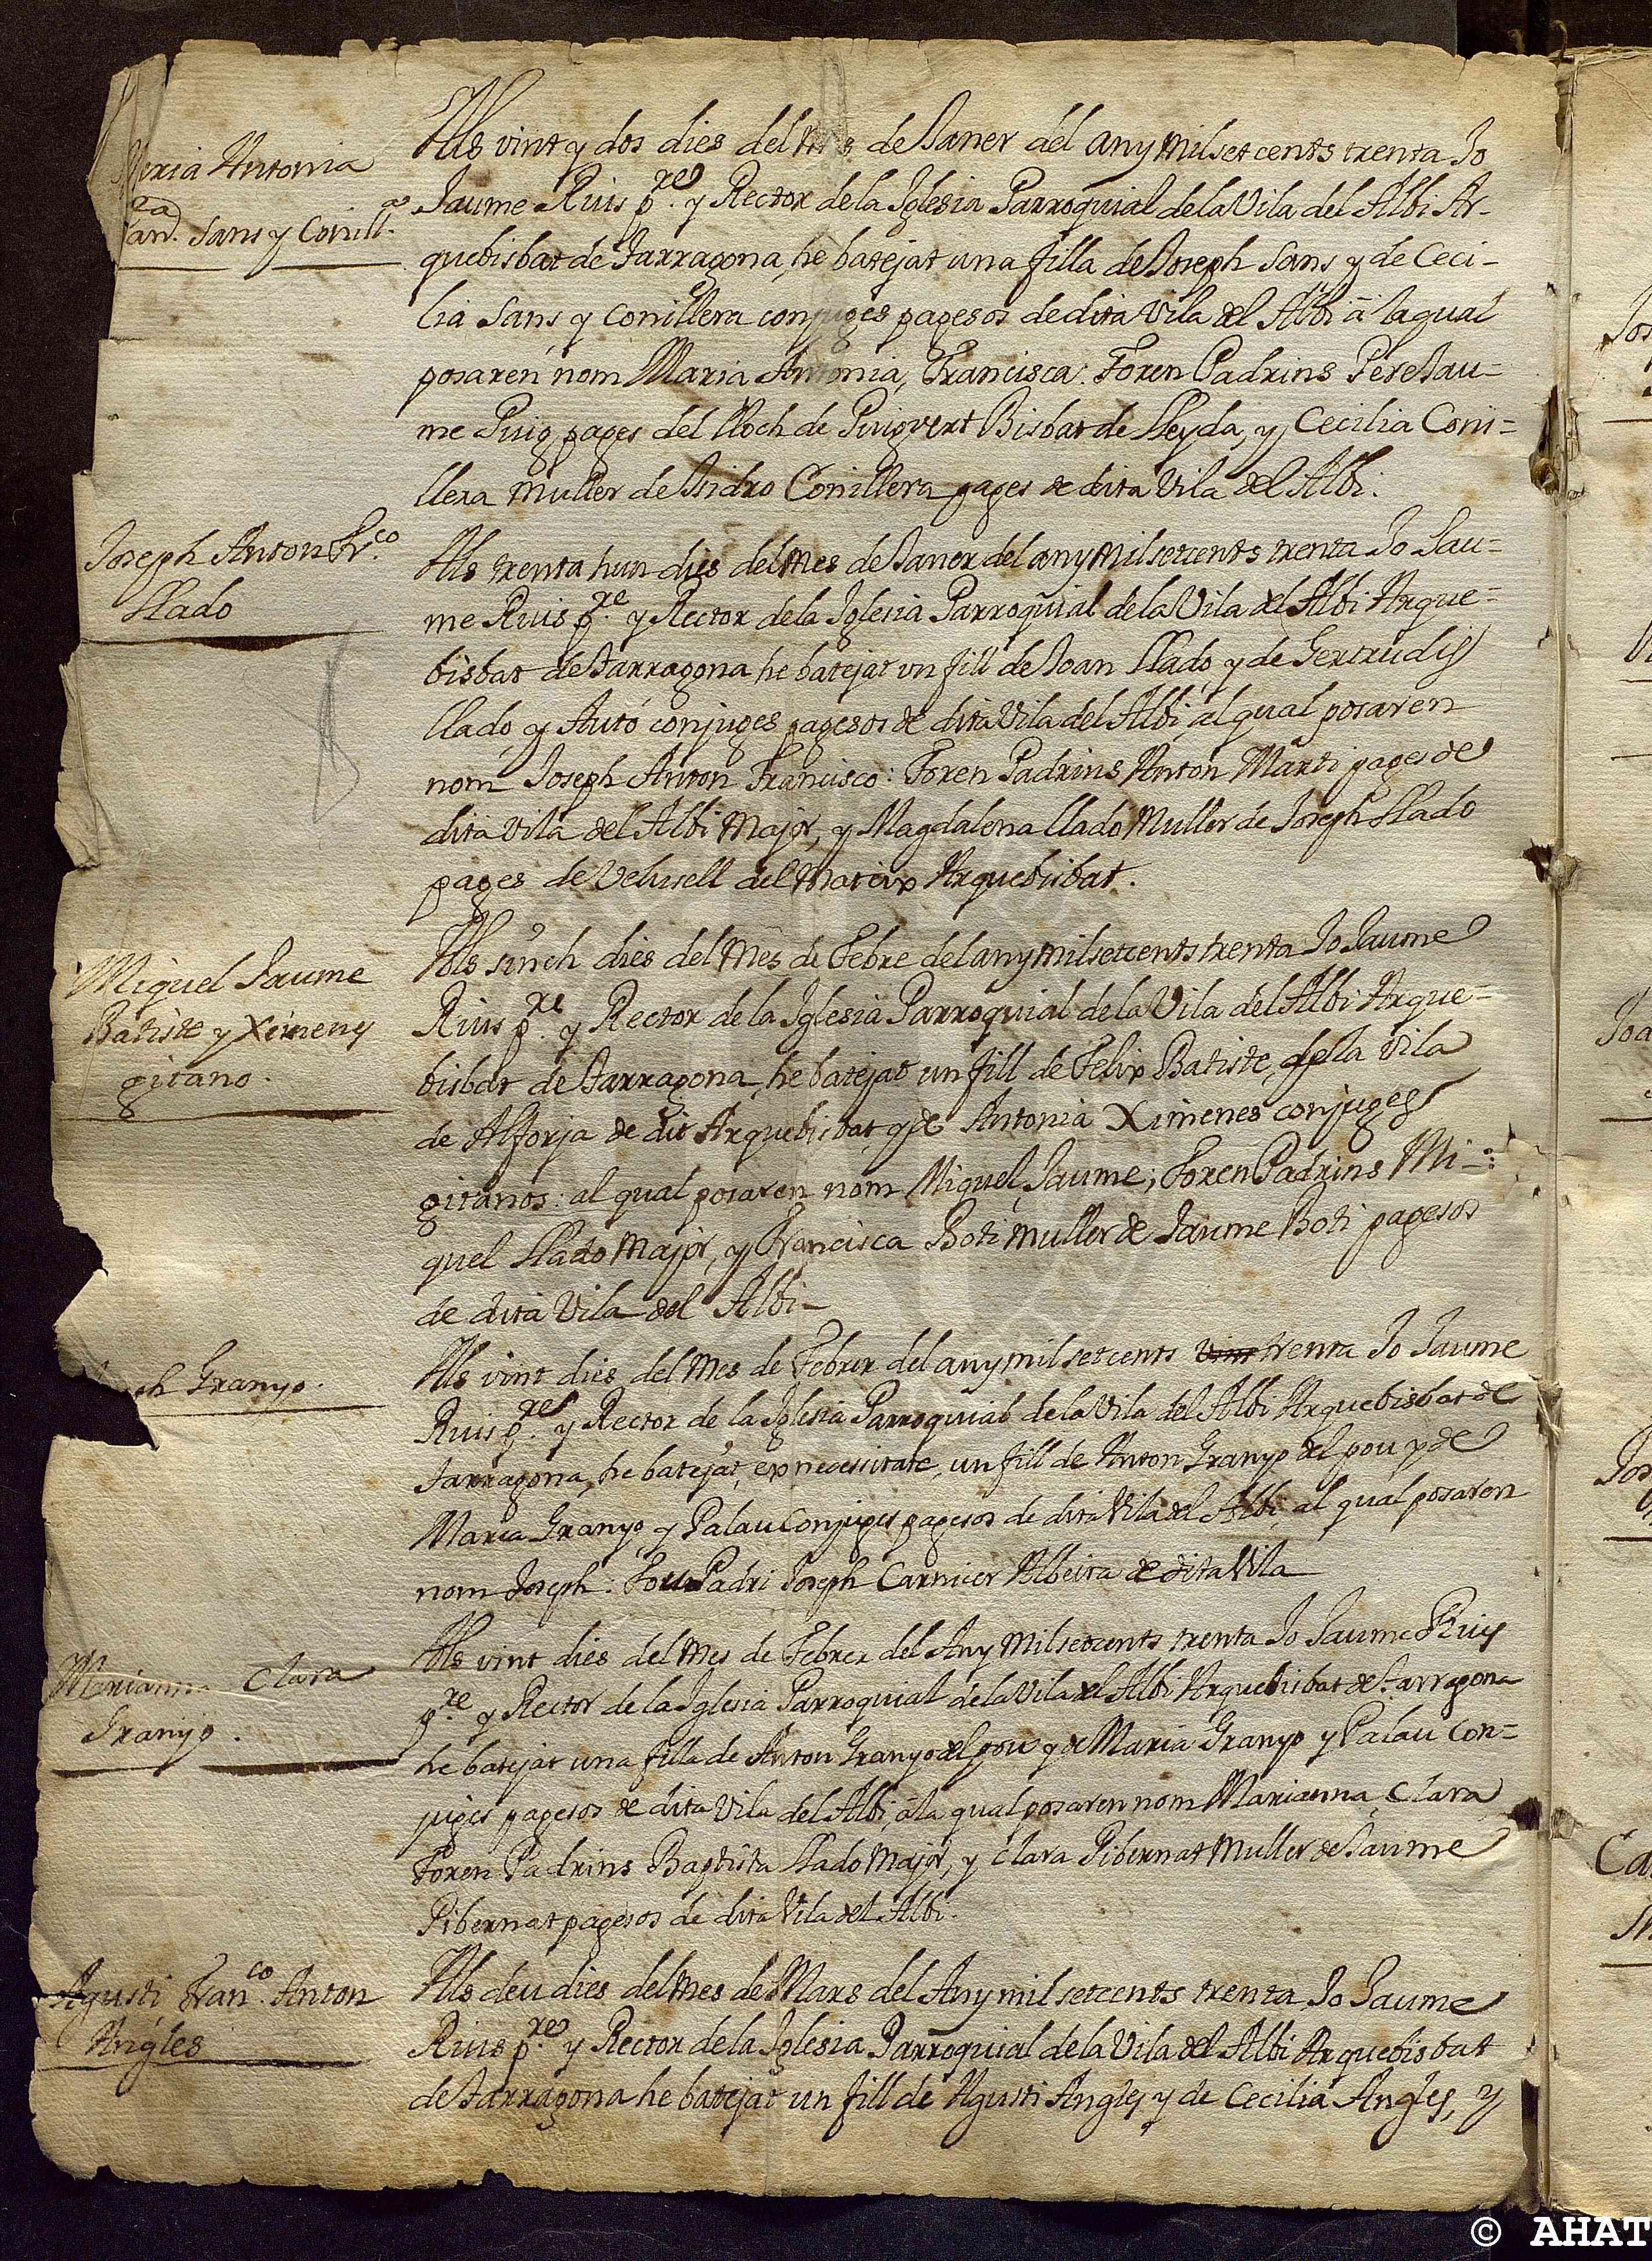 Maria Antonia
Fran.ca Sans y Conill.a
Als vint y dos dies del Mes de Janer del any Mil setcents trenta Jo
Jaume Rius p.re y Rector de la Iglesia Parroquial de la Vila del Albi Ar-
quebisbat de Tarragona, he batejat una filla de Joseph Sans y de Ceci-
lia Sans y Conillera conjuges pagesos de dita Vila del Albi â la qual
posaren nom Maria Antonia, Francisca. Foren Padrins Pere Jau-
me Puig pages del Lloch de Puigvert Bisbat de Lleyda, y Cecilia Coni=
llera Muller de Isidro Conillera pages de dita Vila del Albi.
Joseph Anton Fr.co
Llado
Als trenta hun dies del Mes de Janer del any Mil setcents trenta Jo Jau=
me Rius p.re y Rector de la Iglesia Parroquial de la Vila del Albi Arque=
bisbat de Tarragona he batejat un fill de Joan Llado, y de Gertrudis
Llado, y Autó conjuges pagesos de dita Vila del Albi, al qual posaren
nom Joseph Anton Francisco: Foren Padrins Anton Marti pages de
dita Vila del Albi Major, y Magdalena Llado Muller de Joseph Llado
pages de Velusell del Mateix Arquebisbat.
Miquel Jaume
Batiste y Ximenes
gitano.
Als sinch dies del Mes de Febre del any Mil setcents trenta Jo Jaume
Rius p.re y Rector de la Iglesia Parroquial de la Vila del Albi Arque=
bisbat de Tarragona, he batejat un fill de Felix Batiste, de la Vila
de Alforja de dit Arquebisbat, y de Antonia Ximenes conjuges
gitanos: al qual posaren nom Miquel, Jaume; Foren Padrins Mi-
quel Llado Major, y Francisca Boti Muller de Jaume Boti pagesos
de dita Vila del Albi-
ph Granyo.
Als vint dies del Mes de Febrer del any mil setcents vint trenta Jo Jaume
Rius p.re y Rector de la Iglesia Parroquial de la Vila del Albi Arquebisbat de
Tarragona, he batejat, ex necessitate, un fill de Anton Granyo del pou y de
Maria Granyo, y Palau Conjuges pagesos de dita Vila del Albi, al qual posaren
nom Joseph: Fou Padri Joseph Carnicer Albeita de dita Vila
Marianna Clara
Granyo.
Als vint dies del Mes de Febrer del Any Mil setcents trenta Jo Jaume Rius
p.re y Rector de la Iglesia Parroquial de la Vila del Albi Arquebisbat de Tarragona
he batejat una filla de Anton Granyo del pou y de Maria Granyo y Palau Con=
juges pagesos de dita Vila del Albi, â la qual posaren nom Marianna, Clara
Foren Padrins Baptista Llado Major, y Clara Pibernat Muller de Jaume
Pibernat pagesos de dita Vila del Albi.
Agusti Fran.co Anton
Angles
Als deu dies del Mes de Mars del Any mil setcents trenta Jo Jaume
Rius p.re y Rector de la Iglesia Parroquial de la Vila del Albi Arquebisbat
de Tarragona he batejat un fill de Agusti Angles y de Cecilia Angles, y
© AHAT